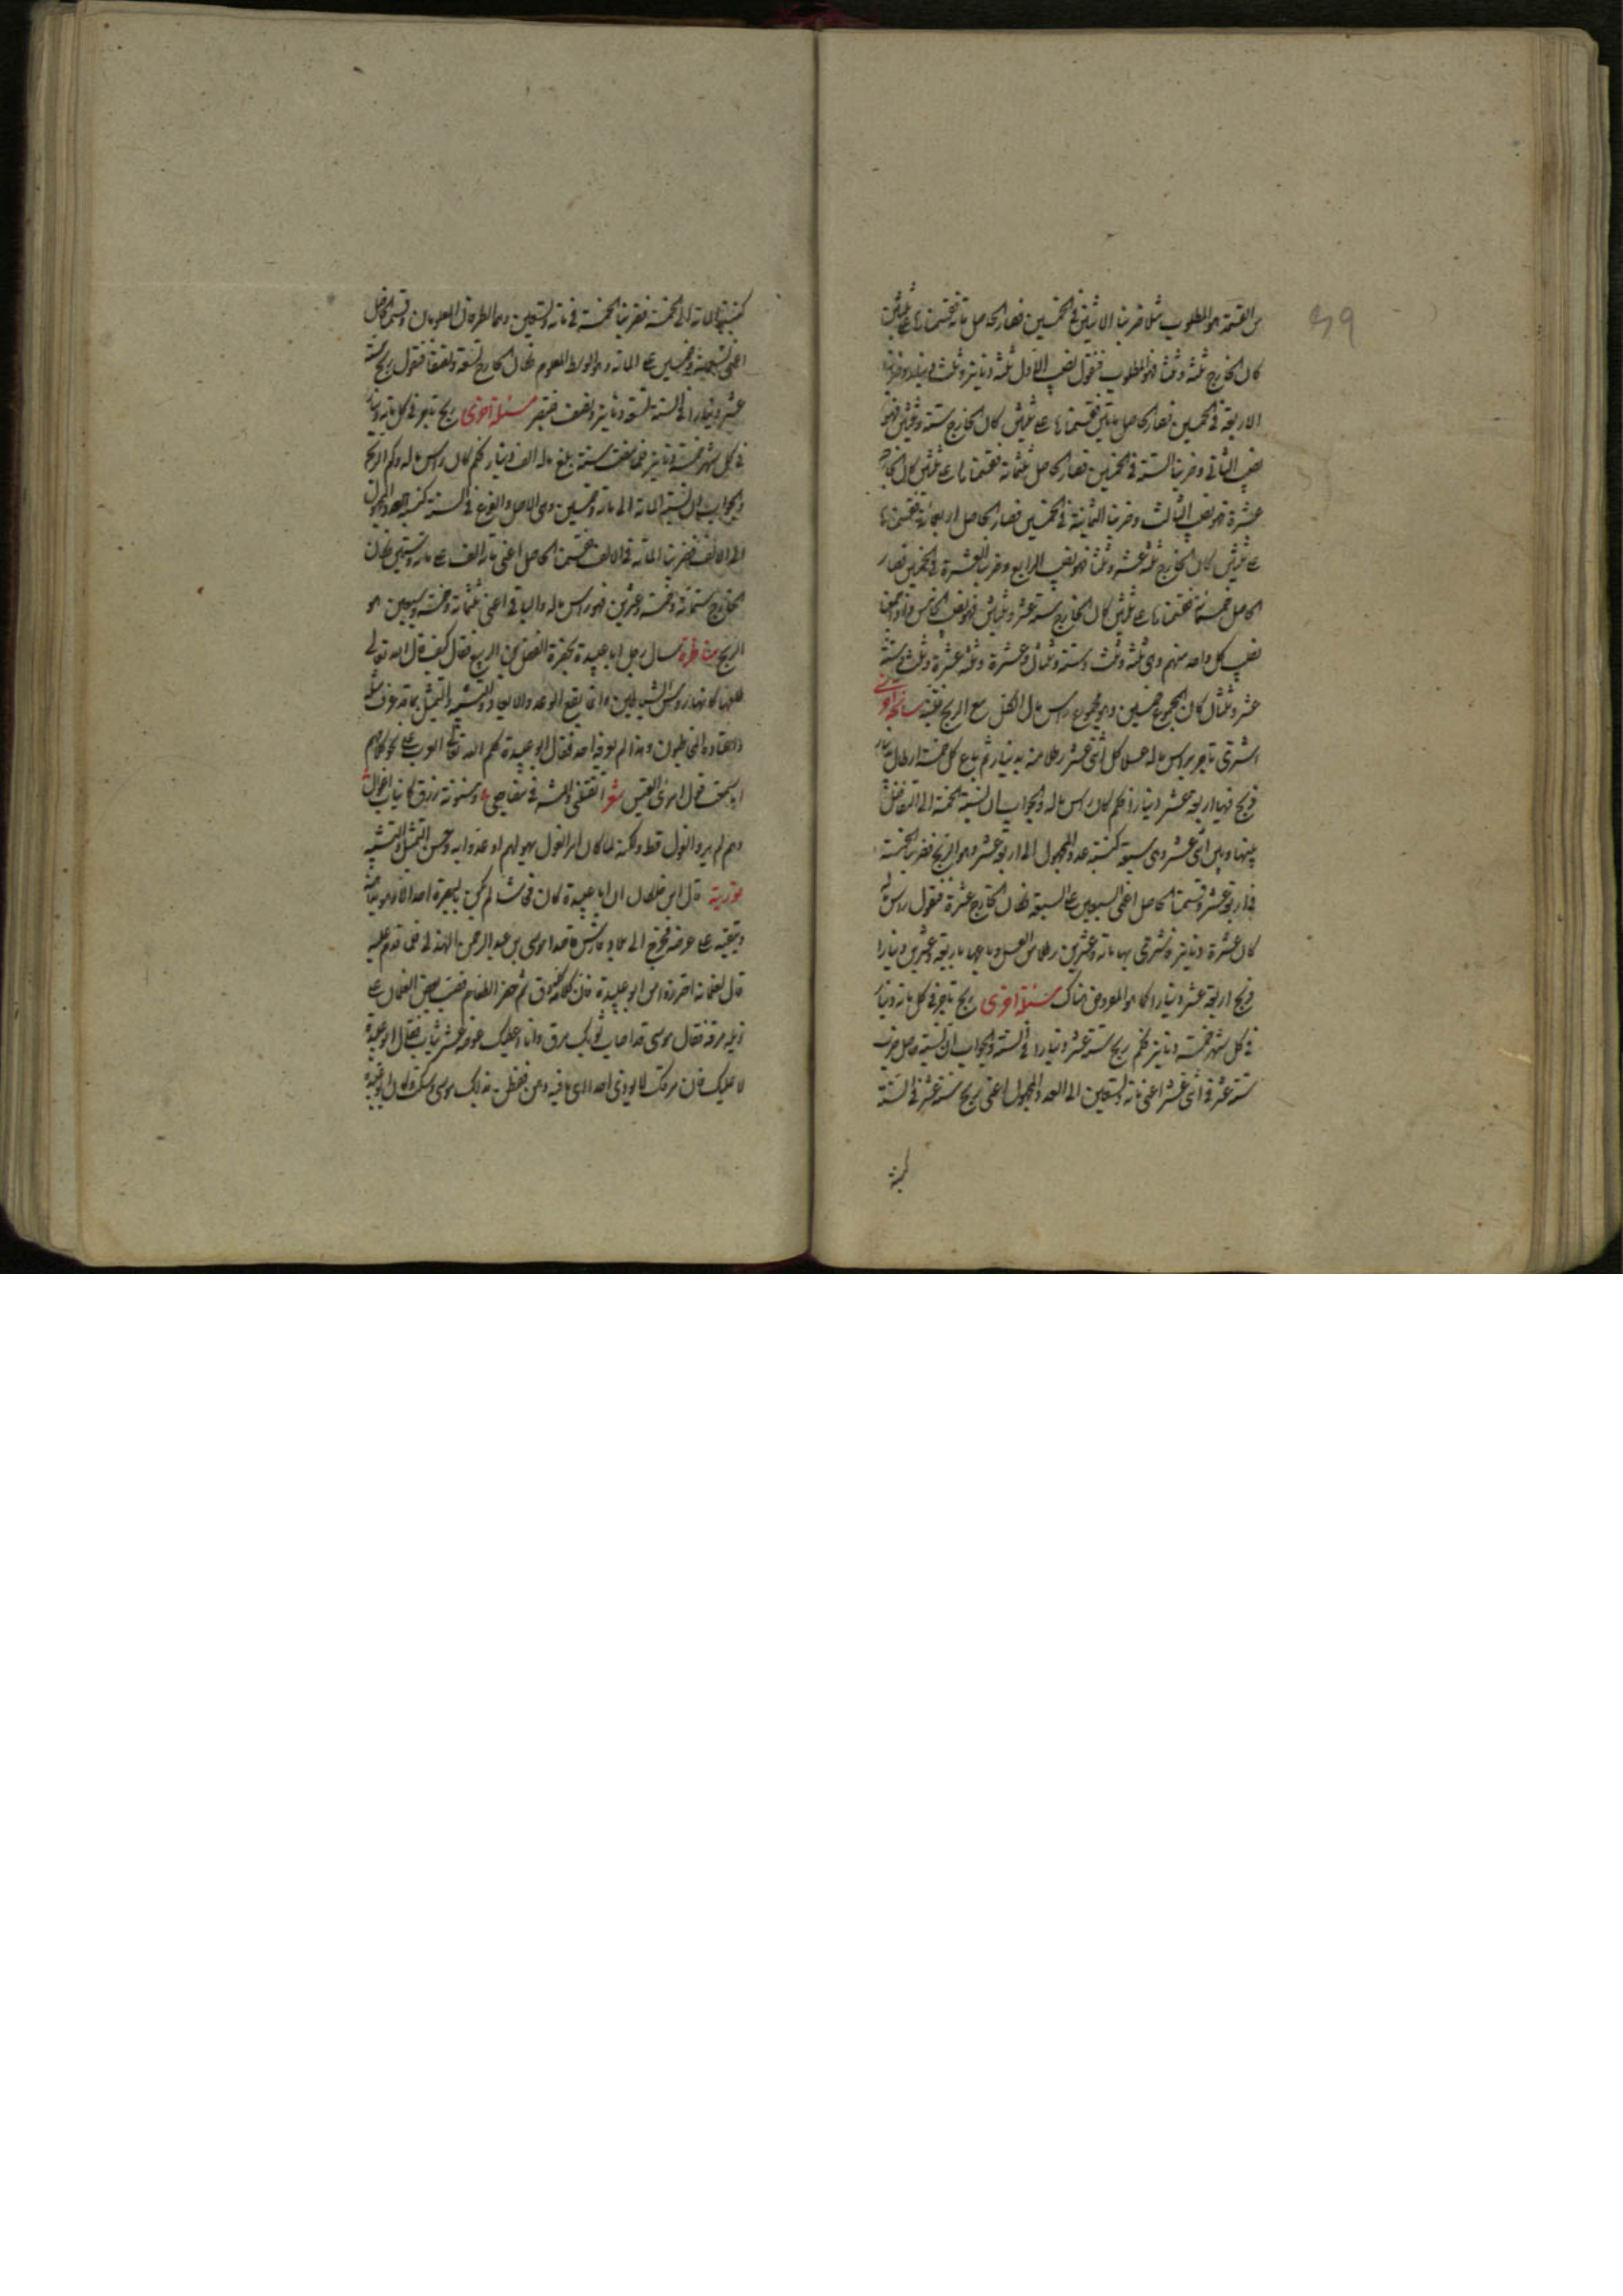 من القسمة هو المطلوب مثلا ضربنا الاثنين في الخمسين فصار الحاصل مائة قسمناها على ثلثين
كان الخارج ثلثة وثلثا فهو المطلوب فنقول نصيب الاول ثلثة دنانير وثلث دينار وضربنا
الاربعة في الخمسين فصار الحاصل مأتين قسمناها على ثلثين كان الخارج ستة وثلثين فهو
نصيب الثاني وضربنا الستة في الخمسين فصار الحاصل ثلثمائة قسمناها على ثلثين كان الخارج
عشرة فهو نصيب الثالث وضربنا الثمانية في الخمسين فصار الحاصل اربعمائة قسمناها
على ثلثين كان الخارج ثلثة عشر وثلثا فهو نصيب الرابع وضربنا العشرة في الخمسين فصار
الحاصل خمسمائة قسمناها على ثلثين كان الخارج ستة عشر وثلثين فهو نصيب الخامس فاذا جمعنا
نصيب كل واحد منهم وهي ثلثة وثلث وستة وثلثان وعشرة وثلثة عشرة وثلث وستة
عشر وثلثان كان المجموع خمسين وهو مجموع راس مال الكل مع الربح
اشترى تاجر براس ماله عسلا كل اثنى عشر رطلا منه بدينار ثم باع كل خمسة ارطال بدينار
فربح فيها اربعة عشر دينارا فكم كان راس ماله والجواب ان نسبة الخمسة الى التفاضل
بينها وبين اثنى عشر وهي سبعة كنسبة عدد المجهول الى اربعة عشر وهو الربح فضربنا الخمسة
في اربعة عشر وقسمنا الحاصل اعني السبعين على السبعة فكان الخارج عشرة فنقول راس ماله
كان عشرة دنانير فشرى بها مائة وعشرين رطلا من العسل وباعها باربعة وعشرين دينارا
فربح اربعة عشر دينارا كما هو المفروض هناك مسئلة اخرى ربح تاجر في كل مائة دينار
في كل شهر خمسة دنانير فكم ربح ستة عشر دينارا في السنة والجواب ان نسبة حاصل ضرب
ستة عشر في اثنى عشر اعني مائة وتسعين الى العدد المجهول اعني ربح ستة عشر في السنة
كنسبة
كنسبة المائة الى الخمسة فضربنا الخمسة في مائة وتسعين وهما الطرفان المعلومان وقسمنا الحاصل
اعني تسعمائة وخمسين على المائة وهو الوسط المعلوم فكان الخارج تسعة ونصفا فنقول ربح ستة
عشر دينارا في السنة تسعة دنانير ونصف فتبصر مسئلة اخرى ربح تاجر في كل مائة دينار
في كل شهر خمسة دنانير فما مضت سنة بلغ ماله الف دينار فكم كان راس ماله وكم الربح
والجواب ان نسبة المائة الى مائة وستين وهي الاصل والفرع في السنة كنسبة العدد المجهول
الى الالف فضربنا المائة في الالف وقسمنا الحاصل اعني مائة الف على مائة وستين فكان
الخارج ستمائة وخمسة وعشرين فهو راس ماله والباقي اعني ثلثمائة وخمسة وسبعين هو
الربح مناظرة سال رجل ابا عبيدة بحضرة الفضل بن الربيع فقال كيف قال الله تعالى
طلعها كانه رؤس الشياطين وانما يقع الوعد والايعاد والتشبيه والتمثيل بما قد عرف مثله
واعتاده المخاطبون وهذا لم يعرفه احد فقال ابو عبيدة كلم الله تعالى العرب على نحو كلامهم
اما سمعت قول امرئ القيس شعر ايقتلني والمشرفي مضاجعي ومسنونة زرق كانياب اغوال
وهم لم يروا الغول قط ولكنه لما كان امر الغول يهولهم اوعدوا به وحسن التمثيل والتشبيه
تورية قال ابن خلكان ان ابا عبيدة كان فحاشا لم يكن بالبصرة احد الا وهو يداجنه
ويتقيه على عرضه فخرج الى بلاد فارس قاصدا موسى بن عبد الرحمن الهلالي فلما قدم عليه
قال لغلمانه احترزوا من ابي عبيدة فان كلامه دق ثم حضر الطعام فصب بعض الغلمان على
ذيله مرقة فقال موسى قد اصاب ثوبك مرق وانا اعطيك عوضه عشر ثياب فقال ابو عبيدة
لا عليك فان مرقك لا يوذي احدا اي ما فيه دهن ففطن لذلك موسى وسكت وكان ابو عبيدة